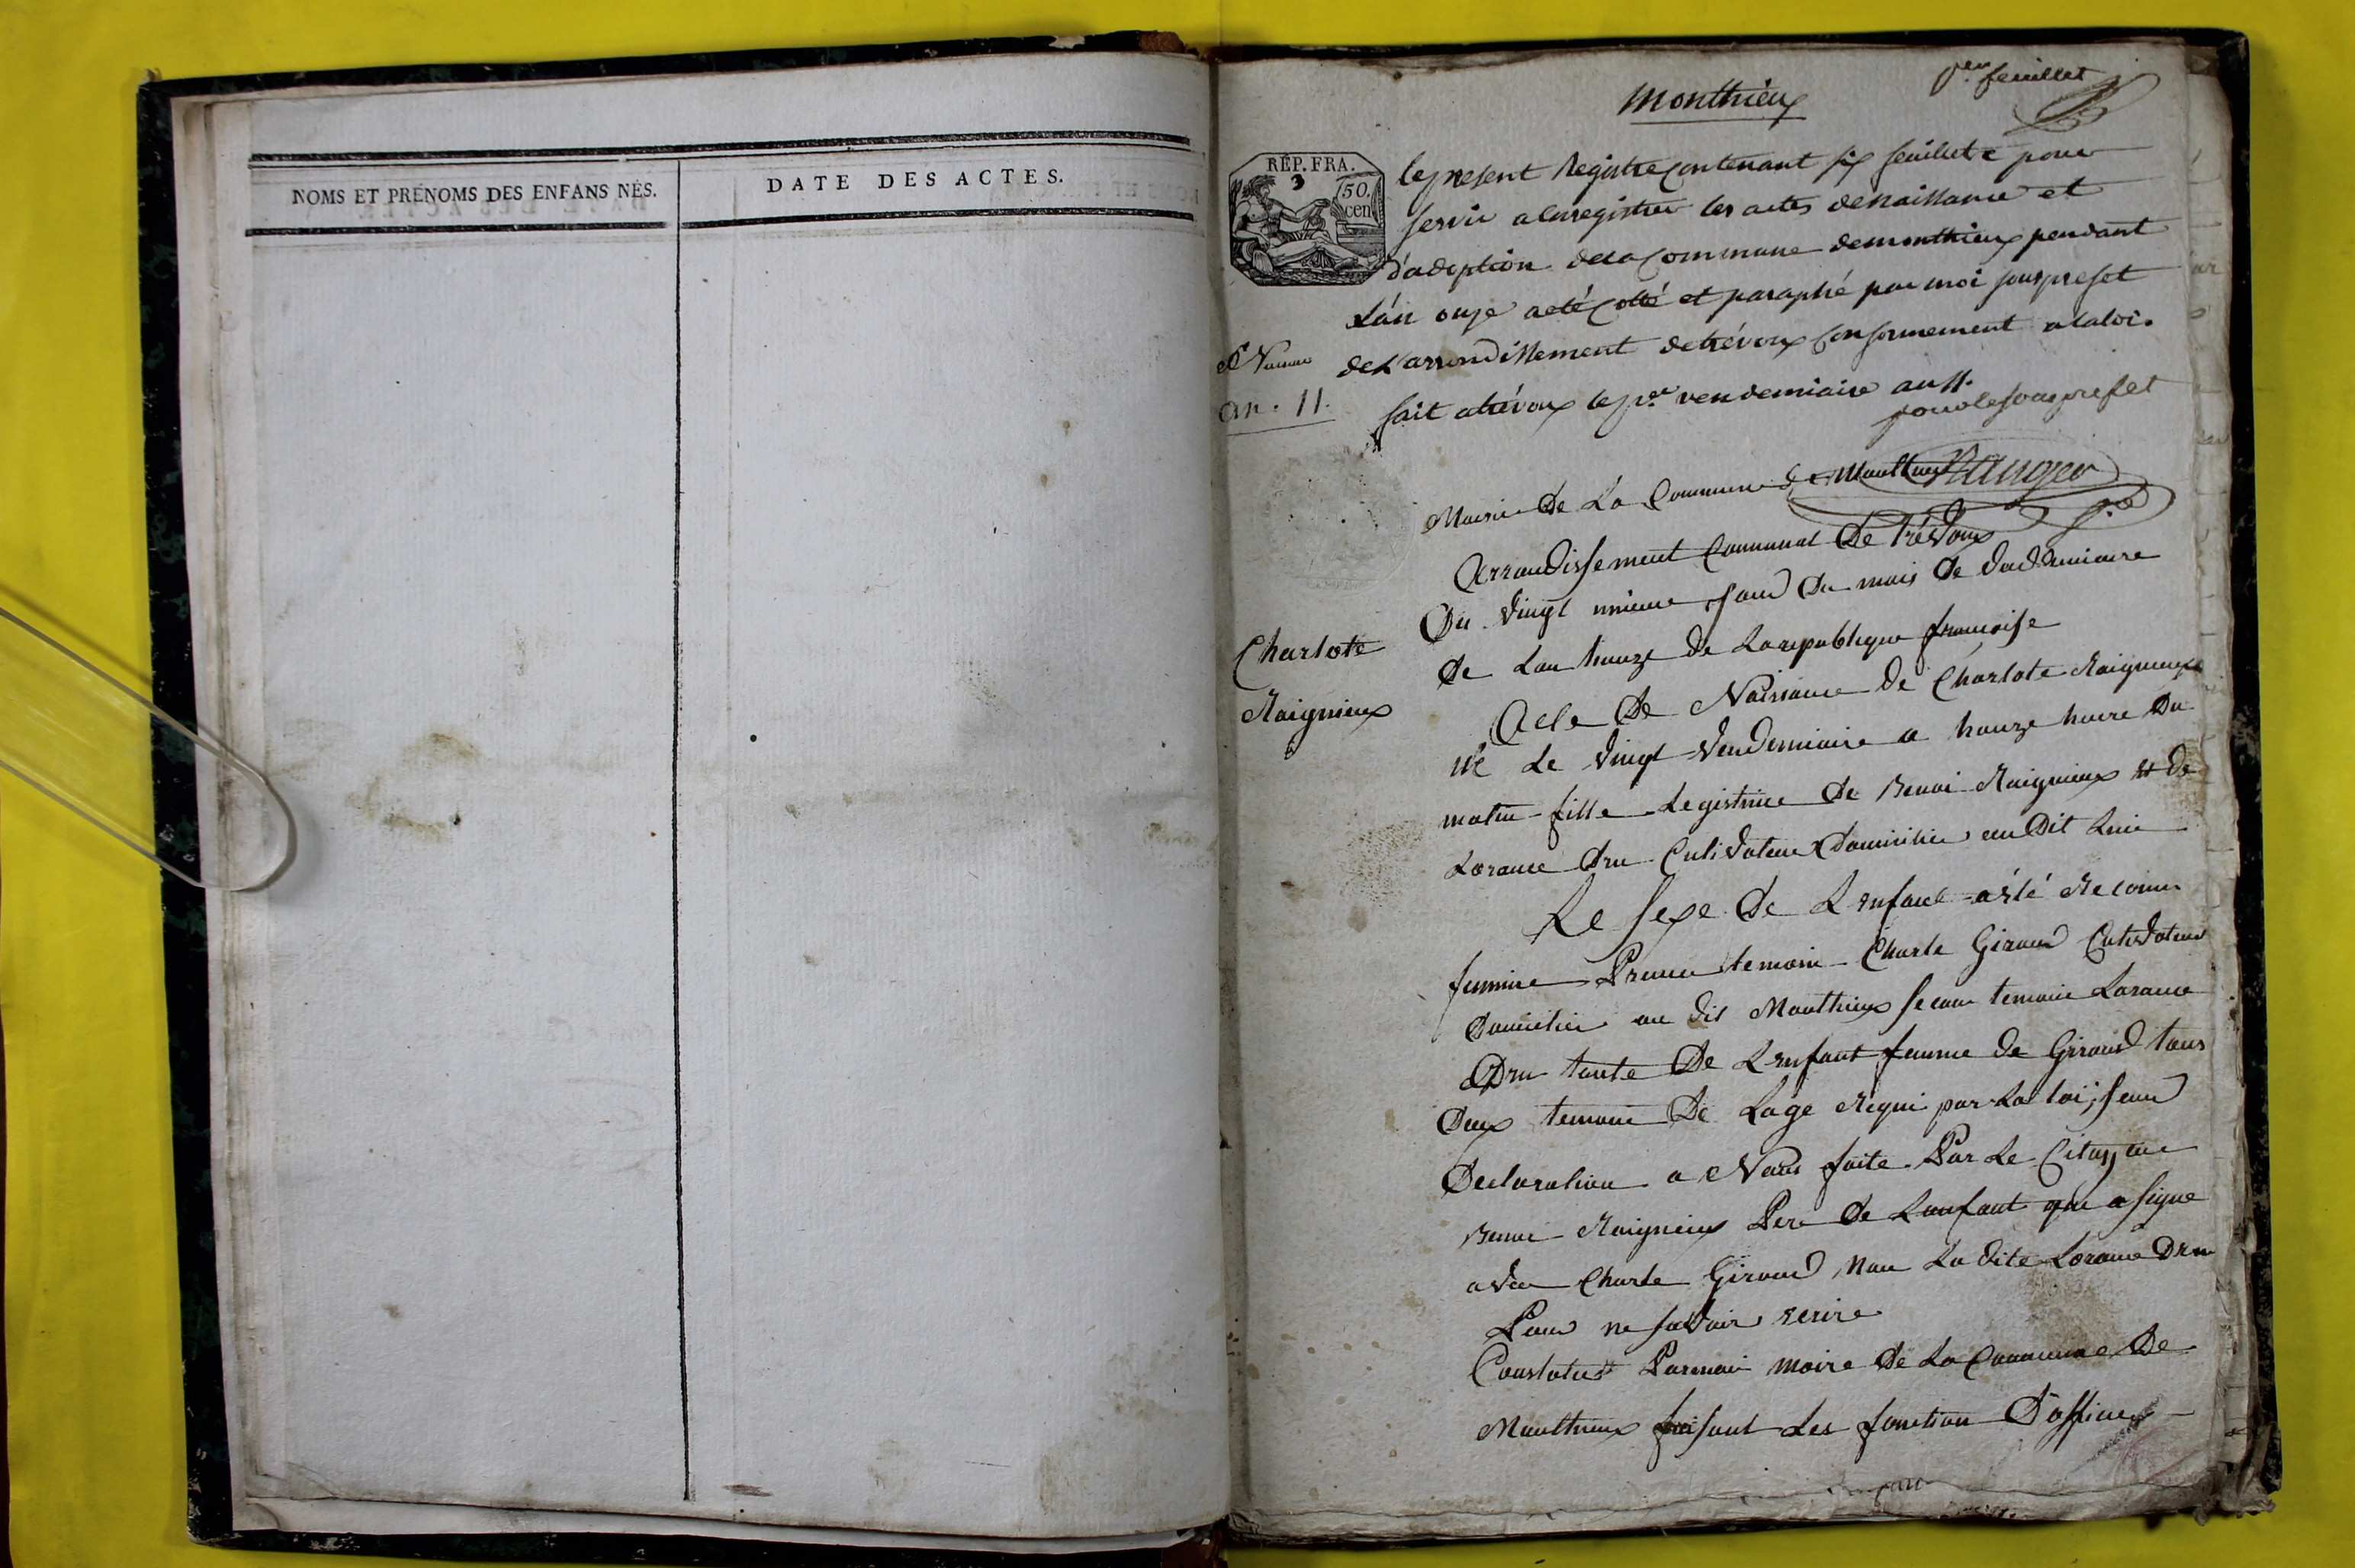 NOMS ET PRÉNOMS DES ENFANS NÉS.
DATE DES ACTES.
Monthieux
1er feuillet
RÉP. FRA.
3
50
cen
le present Registre contenant six feuillets pour
servir a Enregistrer les actes de naissance et
d'adoption de la Commune de monthieux pendant
L'an onze a été Cotté et paraphé par moi sous prefet
de L'arrondissement de trévoux Conformement a la loi.
fait a trévoux le per vendemiaire an 11.
pour le sous prefet
an. 11.
Mairie De La Commune de Monthieux
Arrondissement Communal De Trévoux
Du vingt unieme jour Du mois De Vandemiaire
de Lan honze de La republique françoise
Charlote
Raignieux
Acte De Naisance De Charlote Raignieux
né Le vingt Vendemiaire a honze heure Du
matin fille Legistime De Benoi Raignieux et De
Lorance Dru Cultivateur Domicilié au Dit Lieu
Le sexe De Lenfant a été Reconnu
feminine Premier temoin Charle Giraud Cultivateur
Domicilié au dit Monthieux second temoin Lorance
Dru tante De Lenfant femme de Giraud tous
Deux temoin De Lage Requi par La loi, sur
Declaration a Nous faite Par Le Citoyen
Benoi Raignieux Pere De Lanfant qui a signe
avec Charle Giraud Non La dite Lorance Dru
Pour ne savoir ecrire
Constatué Par moi maire De La Commune De
Monthieux faisant Les fonction D'officier